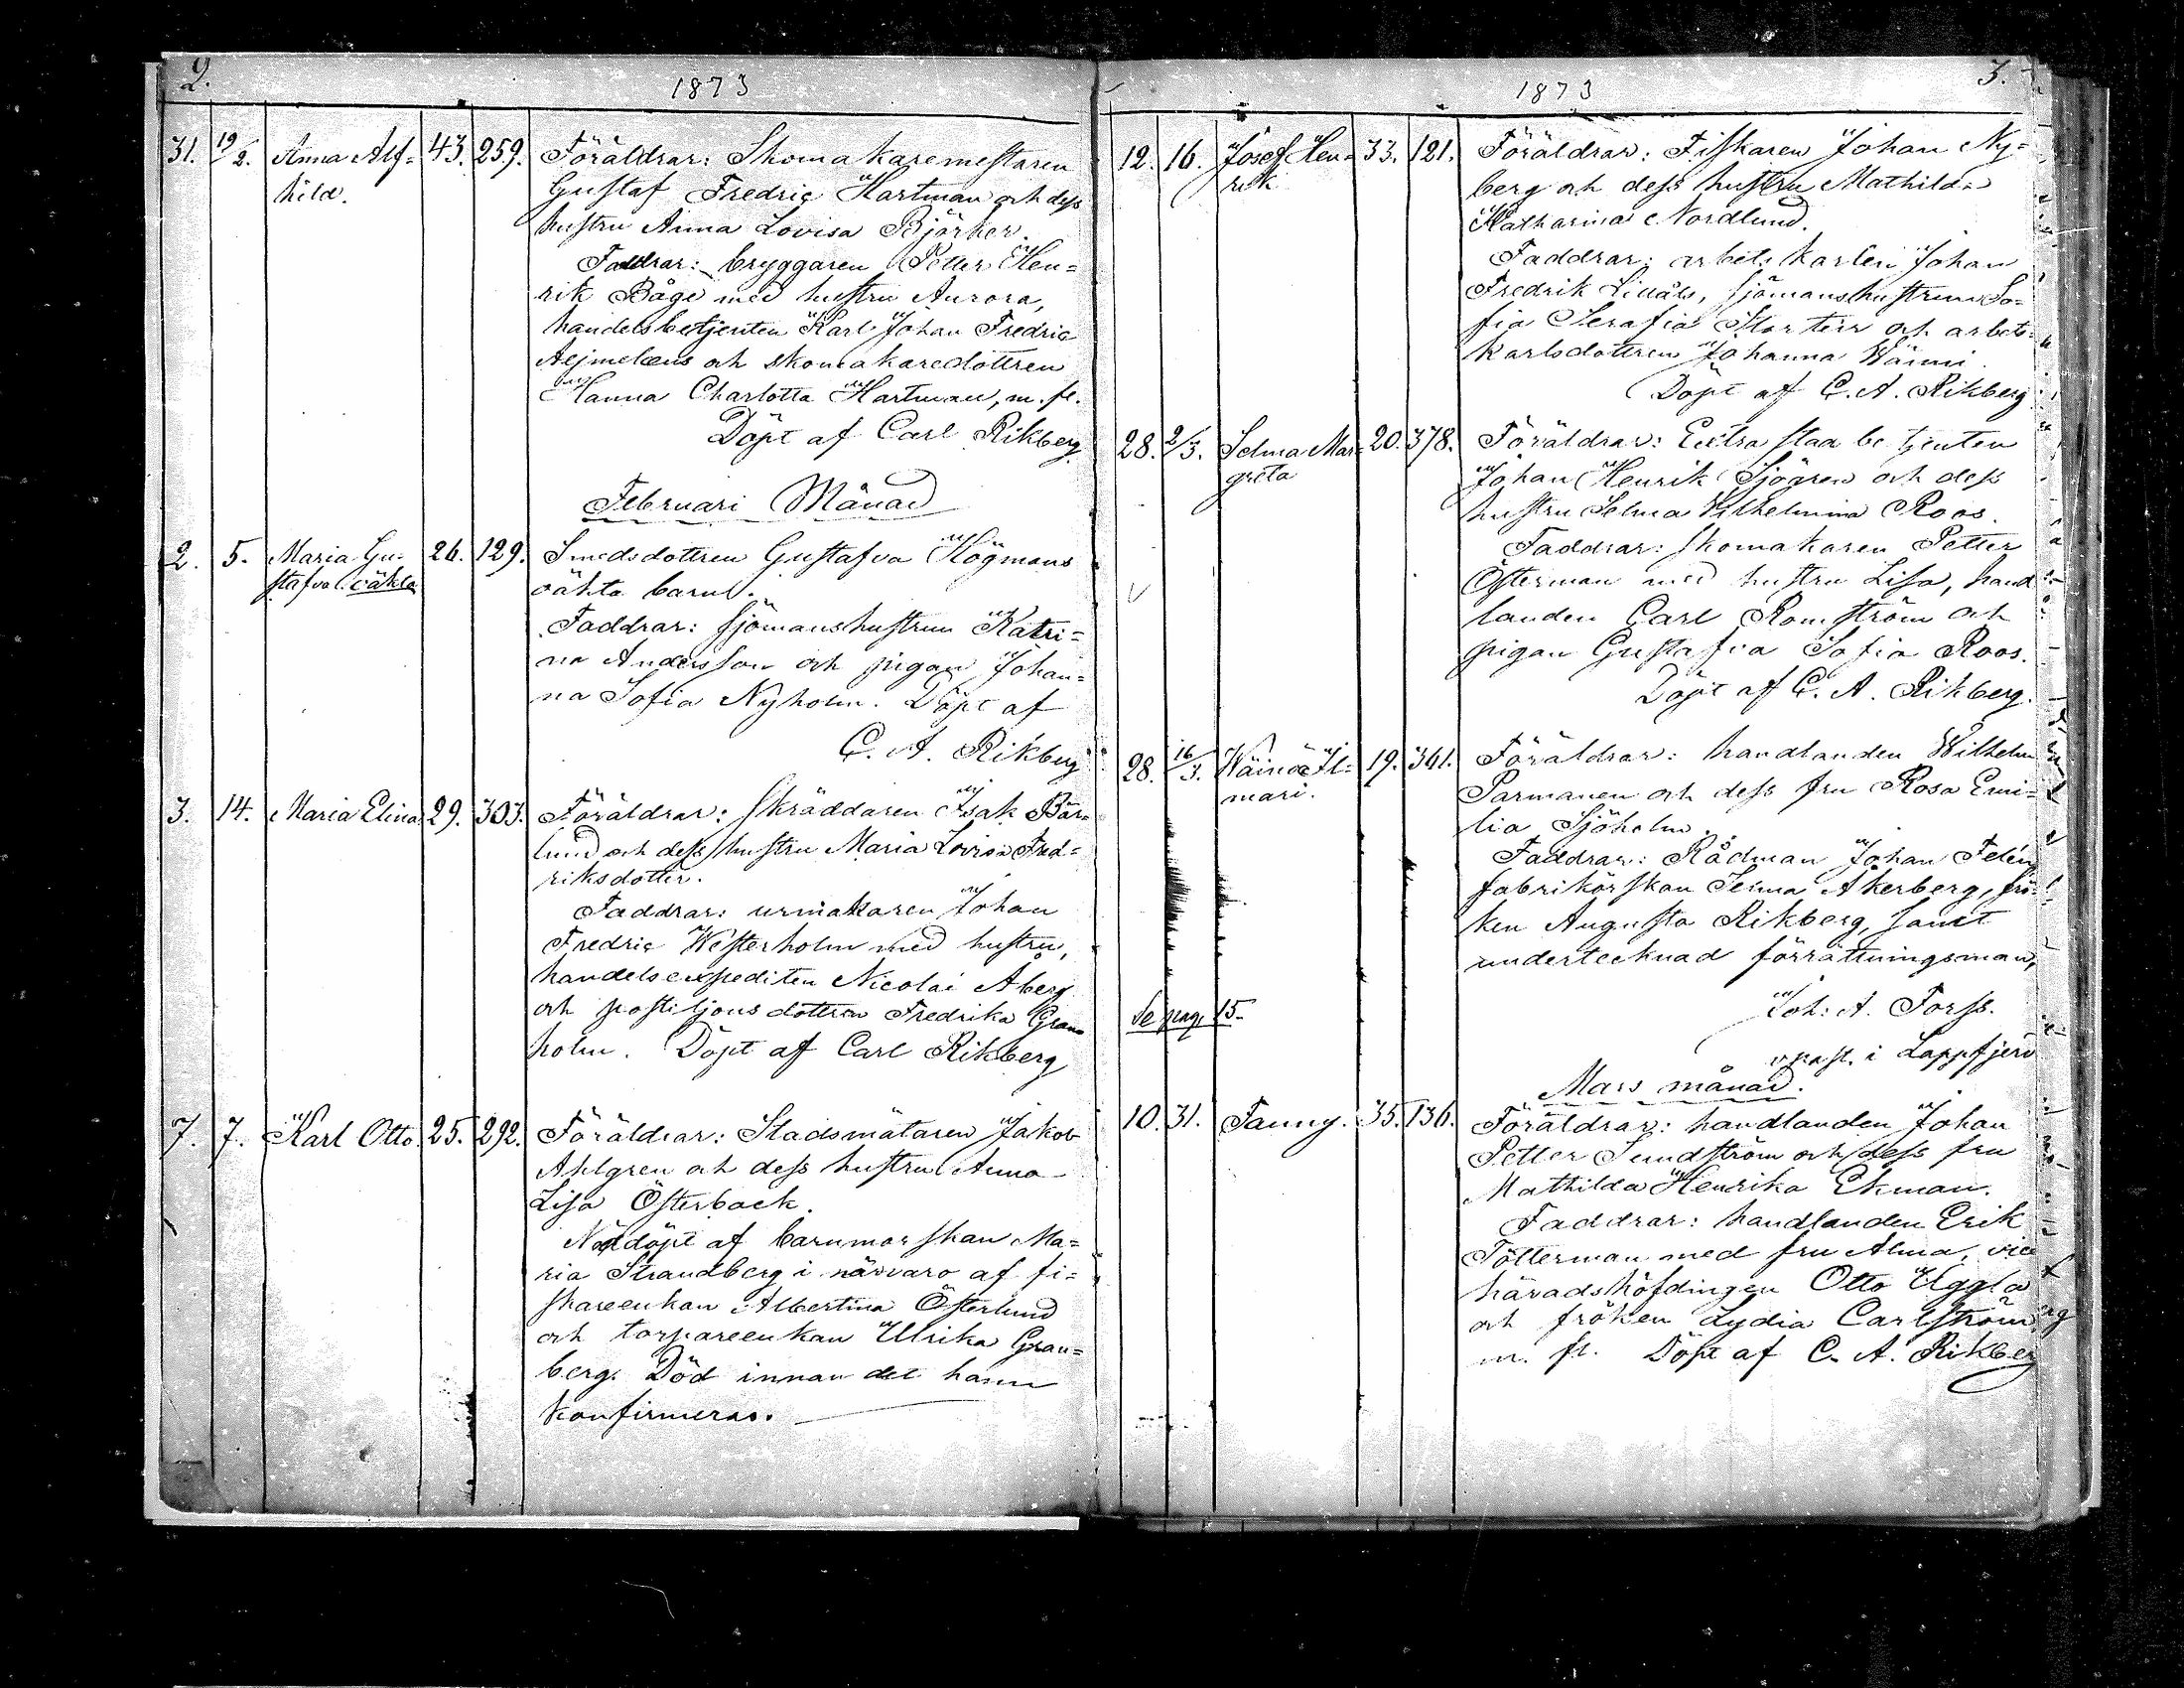 2.
1873
31. 19/2. Anna Alf= 43. 259. Föräldrar: Skomakaremestaren
hild. Gustaf Fredric Hartman och dess
hustru Anna Lovisa Björker.
Faddrar: bryggaren Petter Hen=
rik Båge med hustru Aurora,
handelsbetjenten Karl Johan Fredric
Aejmelæus och skomakaredottren
Hanna Charlotta Hartman, m. fl.
Döpt af Carl Rikberg
Februari Månad
2. 5. Maria Gu= 26. 129. Smedsdottren Gustafva Högmans
stafva. oäkta oäkta barn.
Faddrar: sjömanshustrun Katri=
na Andersson och pigan Johan=
na Sofia Nyholm. Döpt af
C. A. Rikberg
3. 14. Maria Elina 29. 303. Föräldrar: Skräddaren Isak Bär=
lund och dess hustru Maria Lovisa Fred=
riksdotter.
Faddrar: urmakaren Johan
Fredric Westerholm med hustru,
handelsexpediten Nicolai Åberg
och postiljonsdottren Fredrika Gran
holm. Döpt af Carl Rikberg
7. 7. Karl Otto. 25. 292. Föräldrar: Stadsmätaren Jakob
Ahlgren och dess hustru Anna
Lisa Österback.
Nöddöpt af barnmorskan Ma=
ria Strandberg i närvaro af fi=
skareenkan Albertina Österlund
och torpareenkan Ulrika Gran=
berg. Död innan det hann
konfirmeras.
3.
1873
12. 16. Josef Hen= 33. 121. Föräldrar: Fiskaren Johan Ny=
rik berg och dess hustru Mathilda
Katharina Nordlund.
Faddrar: arbetskarlen Johan
Fredrik Lillåls, sjömanshustrun So=
fia Serafia Storteir och arbets=
karlsdottren Johanna Wäimi.
Döpt af C. A. Rikberg
28. 2/3. Selma Mar= 20. 378. Föräldrar: Extra staa betjenten
greta Johan Henrik Sjögren och dess
hustru Selma Wilhelmina Roos.
Faddrar: skomakaren Petter
Österman med hustru Lisa, hand
landen Carl Romström och
pigan Gustafva Sofia Roos.
Döpt af C. A. Rikberg.
28. 16/3. Wäinö Il= 19. 361. Föräldrar: handlanden Wilhelm
mari. Parmanen och dess fru Rosa Emi=
lia Sjöholm.
Faddrar: Rådman Johan Felén
fabrikörskan Selma Åkerberg, frö=
ken Augusta Rikberg, samt
undertecknad förrättningsman,
Joh: A. Forss.
v. past. i Lappfjerd
Se pag. 15.
Mars månad.
10. 31. Fanny. 35. 136. Föräldrar: handlanden Johan
Petter Sundström och dess fru
Mathilda Henrika Ekman.
Faddrar: handlanden Erik
Tötterman med fru Alma, vice
häradshöfdingen Otto Uggla
och fröken Lydia Carlström
m. fl. Döpt af C. A. Rikberg